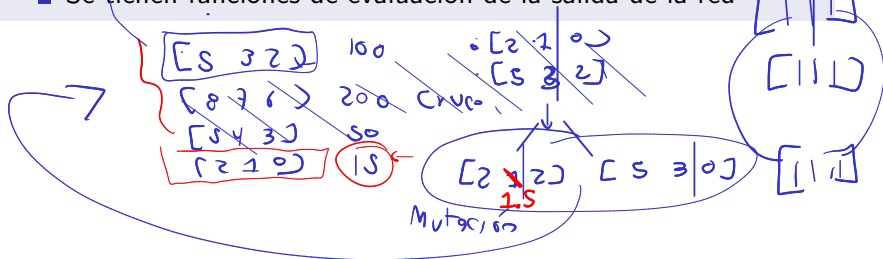 Se tienen funciones de evaluación de la salida de la red
[5 3 2] 100
[8 7 6] 200 Cruce.
[5 4 3] 50
[2 1 0] 15
[2 1 0]
[5 3 2]
[2 1 2] [5 3 0]
1.5
Mutación
[1 1 1]
[1 1 1]